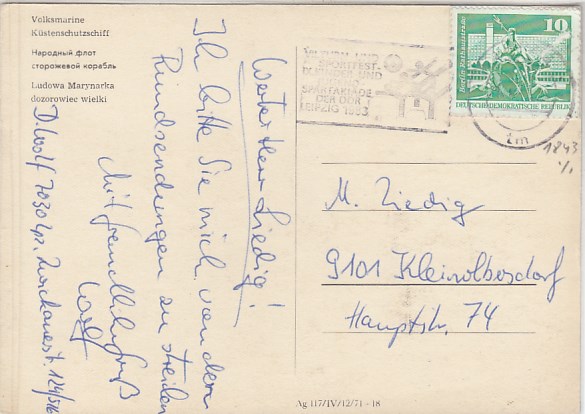 Volksmarine
Küstenschutzschiff
Народный флот
сторожевой корабль
Ludowa Marynarka
dozorowiec wielki
Werter Herr Liedig!
Ich bitte Sie mich von den
Rundsendungen zu streichen
Mit freundlichem Gruß
Wolf
D. Wolf 7030 Lpz. Zwickauerstr. 124/516
TURN- UND
SPORTFEST
KINDER- UND
SPARTAKIADE
DER DDR
LEIPZIG 1983
10
DEUTSCHE DEMOKRATISCHE REPUBLIK
1843
M. Liedig
9101 Kleinolbersdorf
Hauptstr. 74
Ag 117/IV/12/71 - 18